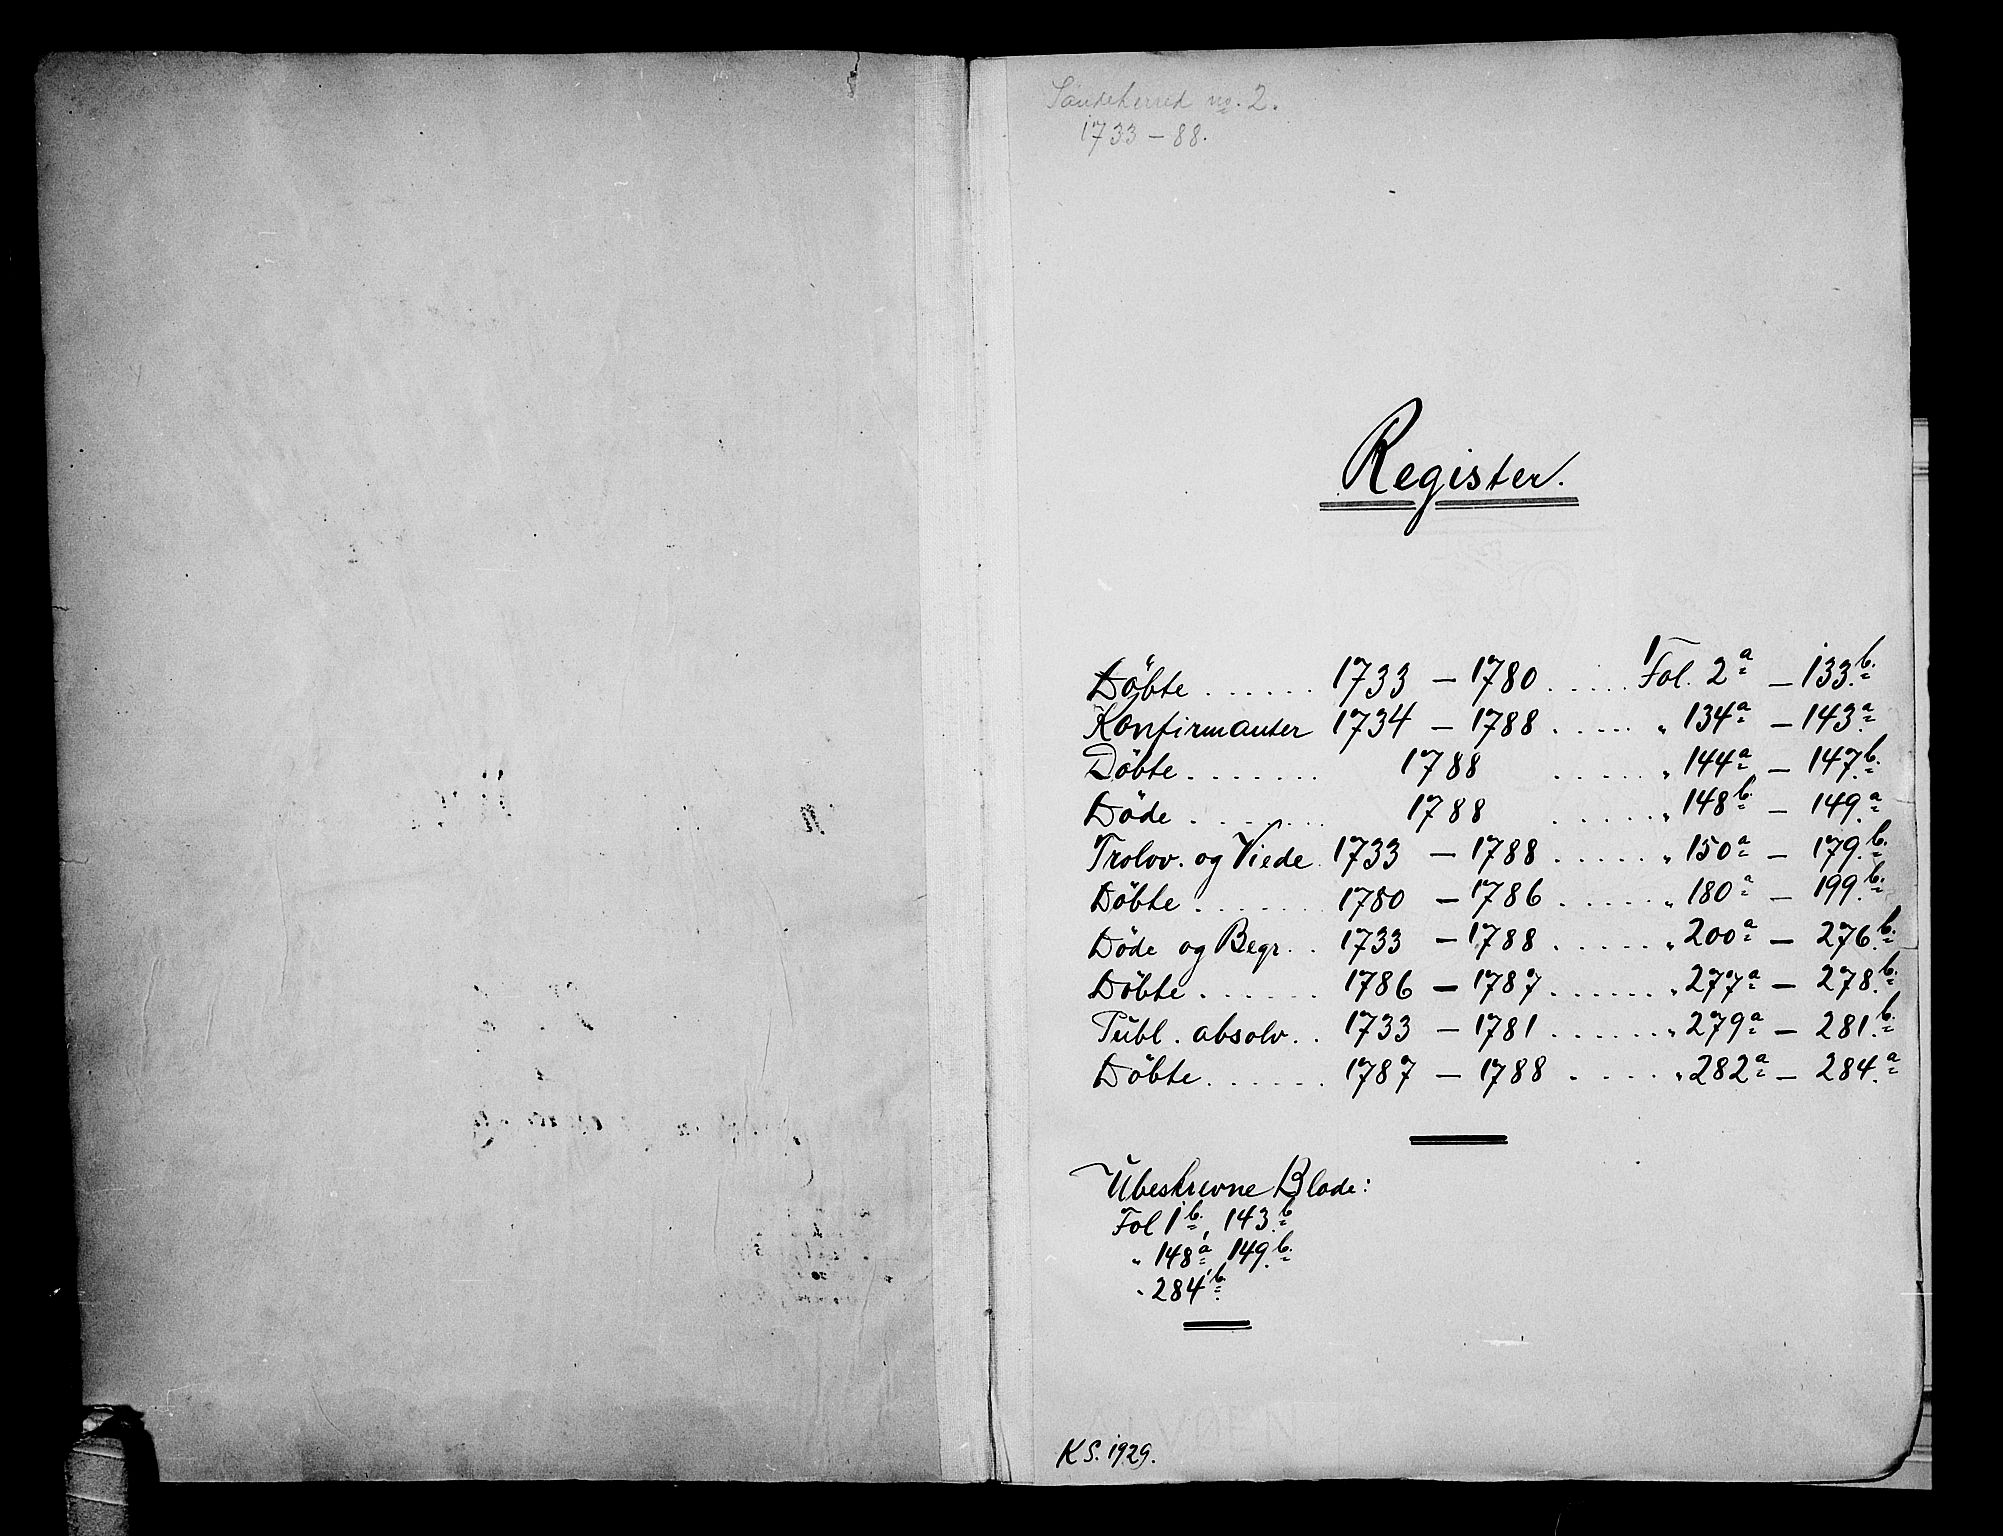 Sandeherred no. 2.
1733 – 88.
Register.
Döbte ...... 1733 – 1780 ..... Fol. 2a – 133b.
Konfirmanter 1734 – 1788 ..... " 134a – 143a
Döbte ....... 1788 ..... " 144a – 147b.
Döde ....... 1788 ..... " 148b – 149a
Trolov. og Viede. 1733 – 1788 ...... " 150a – 179b.
Döbte ....... 1780 – 1786 ...... " 180a – 199b.
Döde og Begr. . 1733 – 1788 ...... " 200a – 276b.
Döbte ...... 1786 – 1787 ...... " 277a – 278b.
Publ. absolv. . 1733 – 1781 ...... " 279a – 281b.
Döbte ...... 1787 – 1788 ..... " 282a – 284a
Ubeskrevne Blade:
Fol 1b, 143b
" 148a, 149b.
" 284b.
K S. 1929.